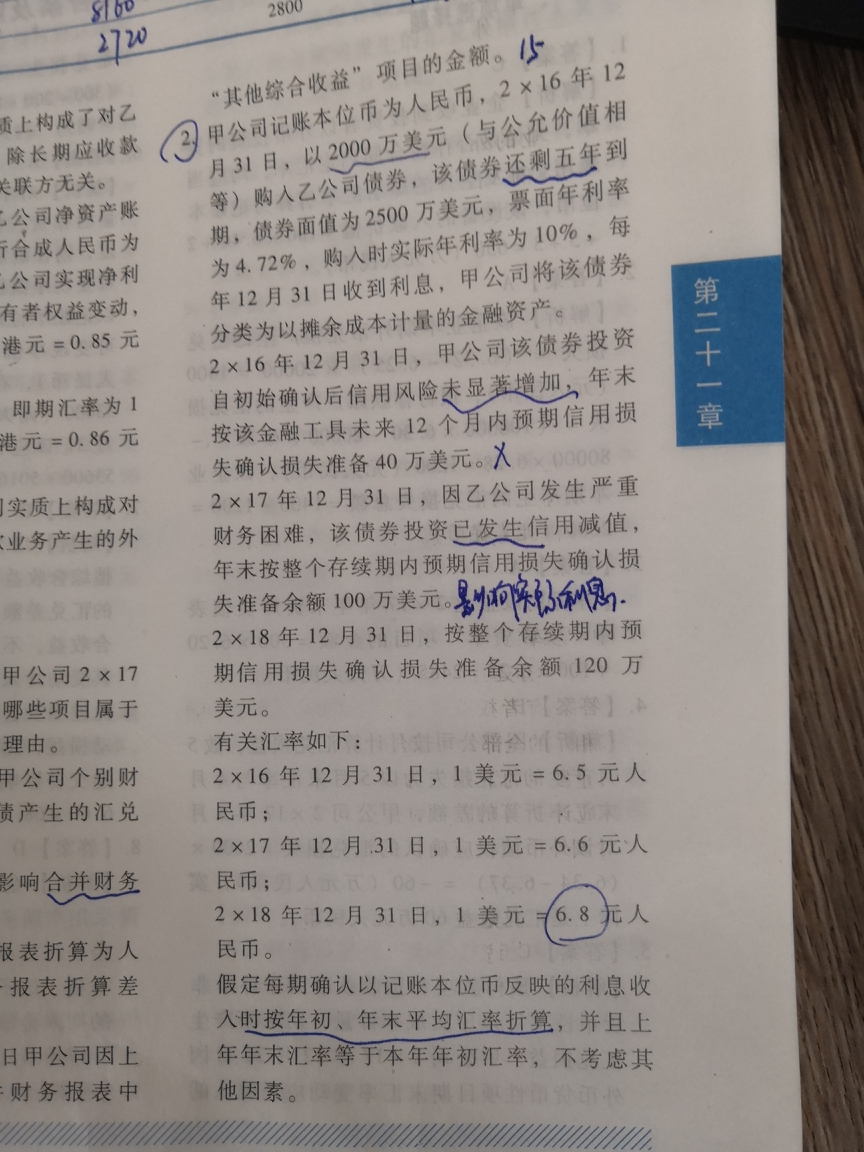 8160
2720
2800
质上构成了对乙
除长期应收款
关联方无关。
乙公司净资产账
折合成人民币为
乙公司实现净利
有者权益变动，
港元=0.85 元
即期汇率为 1
港元=0.86 元
司实质上构成对
次业务产生的外
甲公司 2×17
哪些项目属于
理由。
甲公司个别财
债产生的汇兑
影响合并财务
报表折算为人
报表折算差
日甲公司因上
财务报表中
“其他综合收益”项目的金额。15
2.甲公司记账本位币为人民币，2×16 年 12
月 31 日，以 2000 万美元（与公允价值相
等）购入乙公司债券，该债券还剩五年到
期，债券面值为 2500 万美元，票面年利率
为 4.72%，购入时实际年利率为 10%，每
年 12 月 31 日收到利息，甲公司将该债券
分类为以摊余成本计量的金融资产。
2×16 年 12 月 31 日，甲公司该债券投资
自初始确认后信用风险未显著增加，年末
按该金融工具未来 12 个月内预期信用损
失确认损失准备 40 万美元。X
2×17 年 12 月 31 日，因乙公司发生严重
财务困难，该债券投资已发生信用减值，
年末按整个存续期内预期信用损失确认损
失准备余额 100 万美元。影响实际利息.
2×18 年 12 月 31 日，按整个存续期内预
期信用损失确认损失准备余额 120 万
美元。
有关汇率如下：
2×16 年 12 月 31 日，1 美元=6.5 元人
民币；
2×17 年 12 月 31 日，1 美元=6.6 元人
民币；
2×18 年 12 月 31 日，1 美元=6.8 元人
民币。
假定每期确认以记账本位币反映的利息收
入时按年初、年末平均汇率折算，并且上
年年末汇率等于本年年初汇率，不考虑其
他因素。
第二十一章